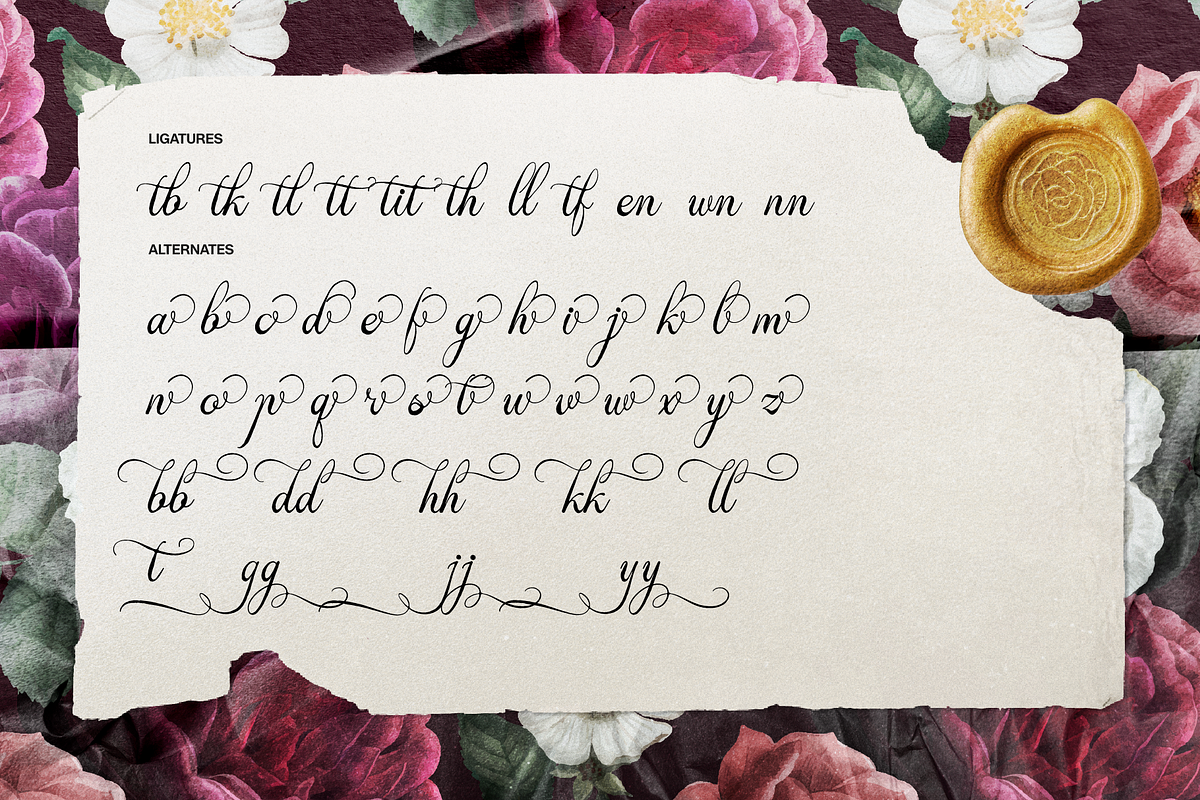 LIGATURES
tb tk tl tt tit th ll tf en wn nn
ALTERNATES
a b c d e f g h i j k l m
n o p q r s t u v w x y z
bb dd hh kk ll
t gg jj yy